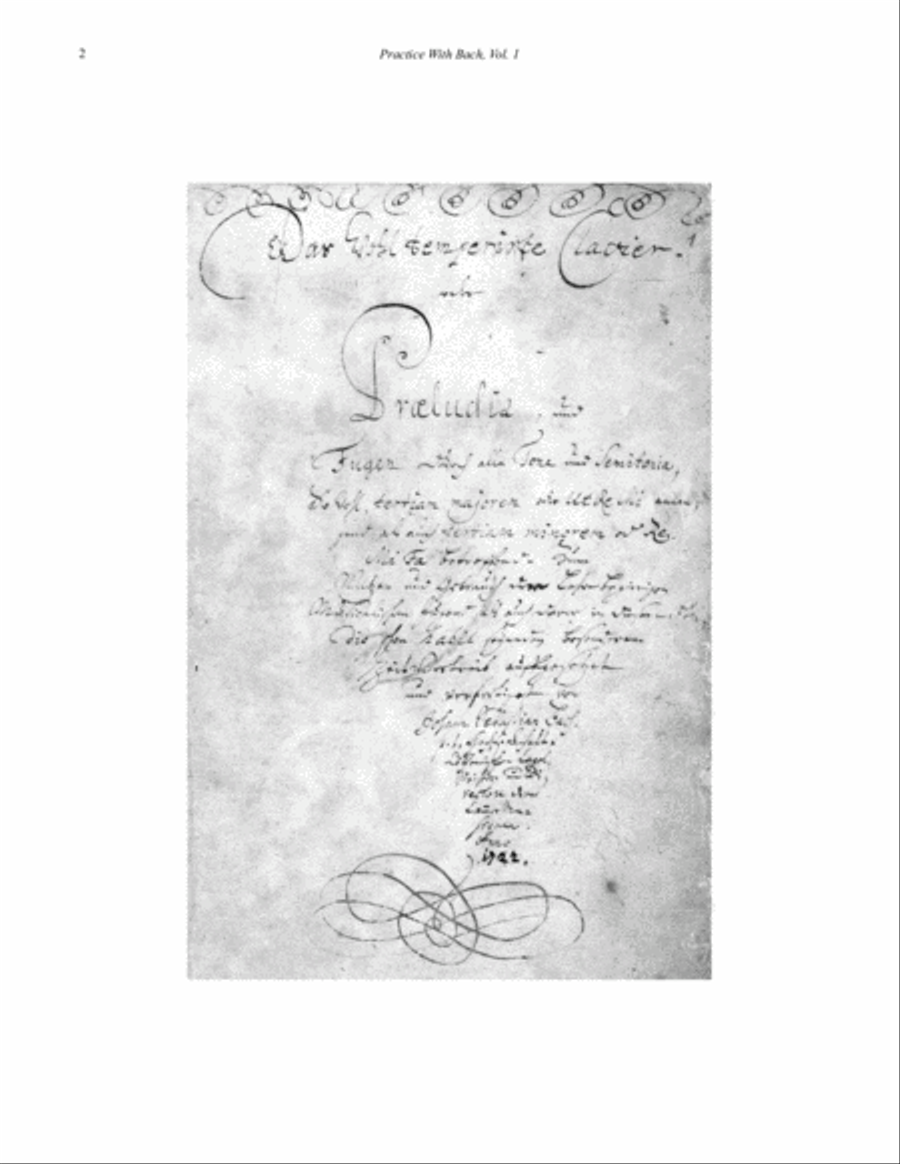 2 Practice With Bach, Vol. 1
Das Wohltemperirte Clavier.
oder
Præludia, und
Fugen durch alle Tone und Semitonia,
So wohl tertiam majorem oder Ut Re Mi
als auch tertiam minorem oder Re
Mi Fa betreffend. Zum
Nutzen und Gebrauch der Lehrbegierigen
Musicalischen Jugend als auch derer in diesem
schon habil seyenden besonderem
ZeitVertreib auffgesetzet
und verfertiget von
Johann Sebastian Bach.
Anno
1722.